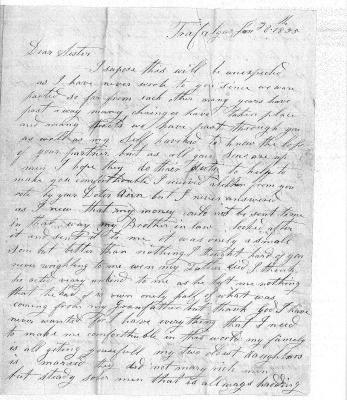 Trafalgar Jan 28th 1855
Dear Sister
I supose this will be unexpected
as I have never wrote to you since we ware
parted so far from each other many years have
past away many changes have taken place
and we have past through you
as well as my self have had to know the loss
of your partner but as all your sons are up
men I hope they do their to help to
make you comfortable I received a letter from you
rote by your but I never answered
as I new that my money could not be sent home
in that way my Brother in law looked after
it and sent it to me it was onely a small
but better than nothing I thought hard of you
never wrighting to me wen my Father died I think
he acted very unkind to me as he left me nothing
that he had of is own onely half of what was
coming from my Grandfather but thank God I have
never wanted I have everything that I need
to make me comfortable in this world my family
is all geting my two oldest daughters
is married they did not marry rich men
but steady sober men that is all ways